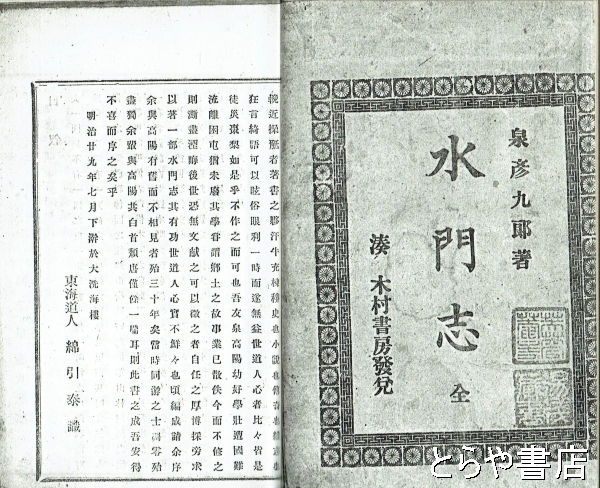 泉彦九郎著
水門志 全
湊 木村書房發兌
輓近操觚者著書之夥汗牛充棟稗史也小說也
狂言綺語可以眩俗眼利一時而遂無益世道人心者比々皆是
徒災棗梨如是乎不作之而可也吾友泉高陽幼好學壯遭國難
流離困屯猶未廢其學眷謂鄉土之故事業已散佚今而不修之
則湮盡溼晦後世恐無文献之可以徵之者自任之厚博採旁求
以著一部水門志其有功世道人心實不鮮々也頃編成請余序
余與高陽有舊而不相見者殆三十年矣當時同游之士凋零殆
盡獨余輩與高陽其白首頹唐僅餘一喘耳則此書之成吾安得
不喜而序之矣乎
明治廿九年七月下澣於大洗海樓
東海道人 綿引泰識
とらや書店